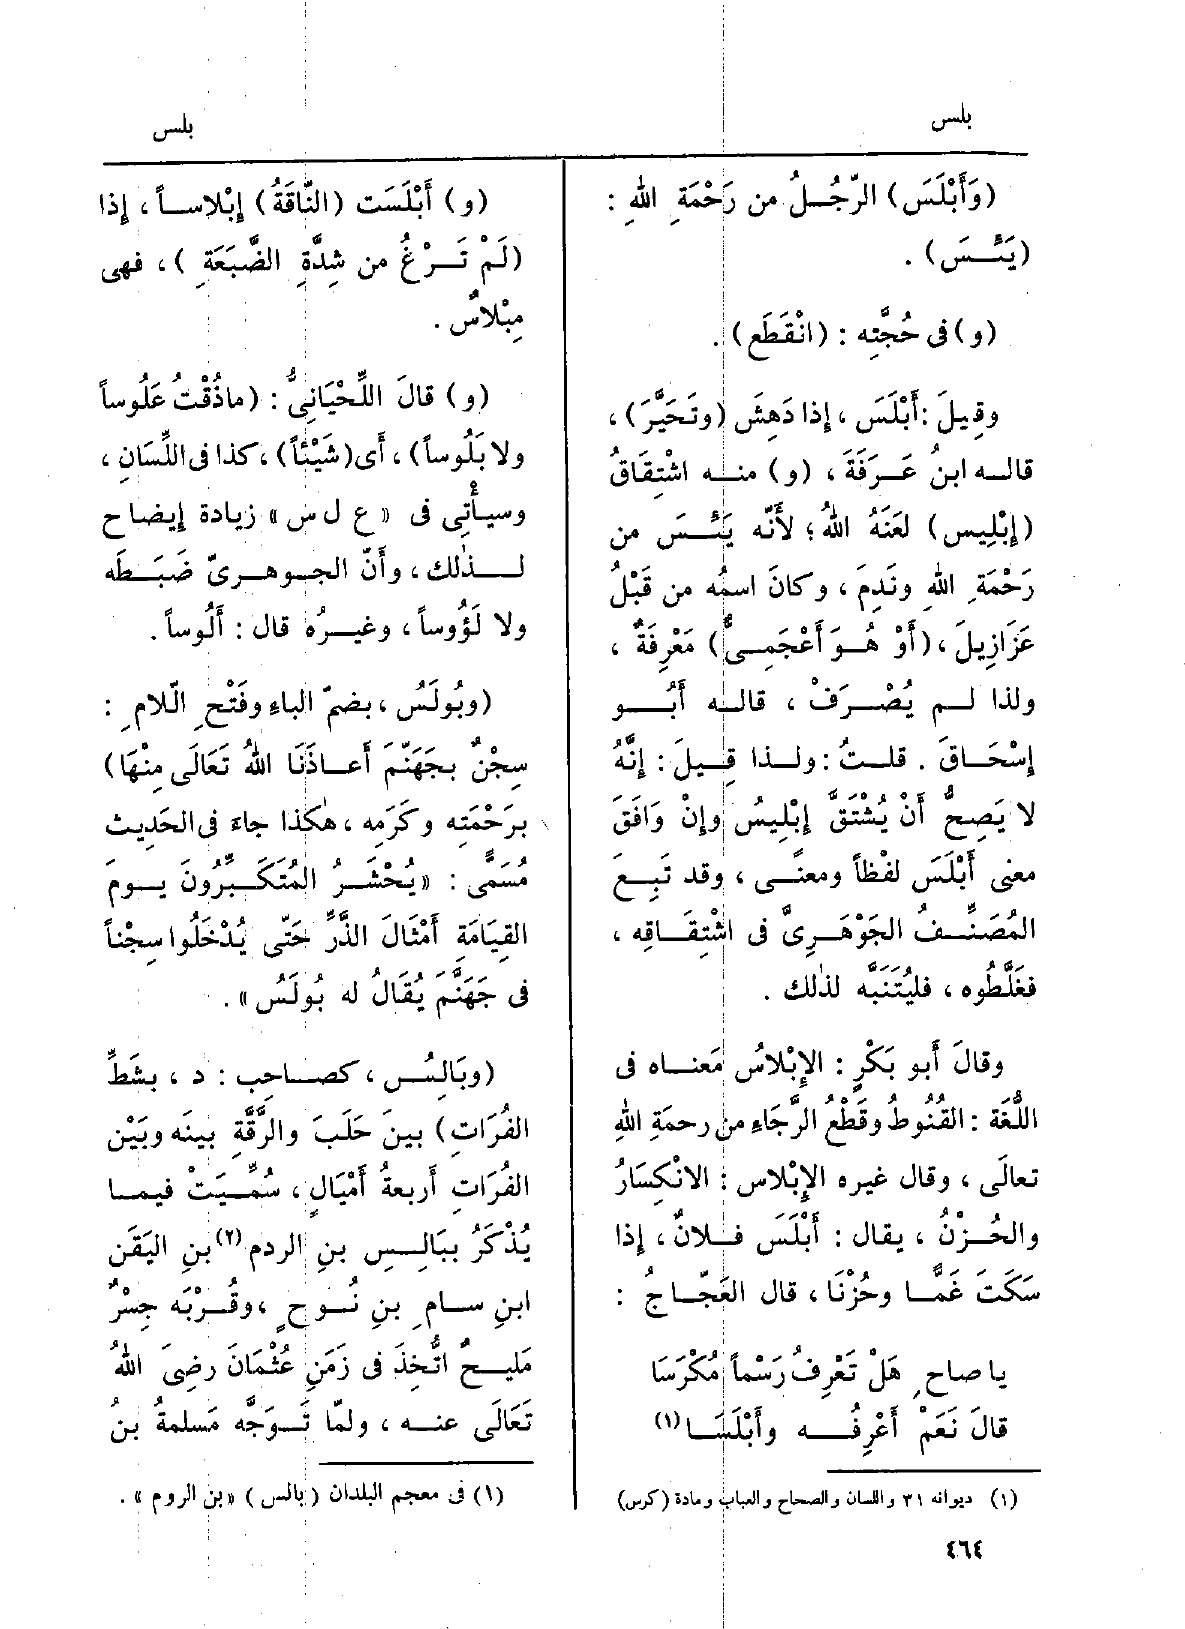 بلس
(وَأَبْلَسَ) الرَّجُلُ من رَحْمَةِ اللهِ :
(يَئِسَ) .
(و) فى حُجَّتِه : (انْقَطَع) .
وقِيلَ : أَبْلَسَ ، إِذا دَهِشَ (وتَحَيَّرَ) ،
قاله ابنُ عَرَفَةَ ، (و) منه اشْتِقَاقُ
(إِبْلِيس) لَعَنَهُ اللهُ ؛ لأَنَّه يَئِسَ من
رَحْمَةِ اللهِ ونَدِمَ ، وكانَ اسمُه من قَبْلُ
عَزَازِيلَ ، (أَوْ هُوَ أَعْجَمِىٌّ) مَعْرِفَةٌ ،
ولذا لم يُصْرَفْ ، قاله أَبُو
إِسْحَاقَ . قلتُ : ولذا قِيلَ : إِنَّهُ
لا يَصِحُّ أَنْ يُشْتَقَّ إِبْلِيسُ وإِنْ وَافَقَ
معنى أَبْلَسَ لفْظاً ومعنًى ، وقد تَبِعَ
المُصَنِّفُ الجَوْهَرِىَّ فى اشْتِقَاقِه ،
فغَلَّطُوه ، فليُتَنَبَّه لذلك .
وقالَ أَبو بَكْرٍ : الإِبْلاسُ مَعناه فى
اللُّغَة : القُنُوط وقَطْعُ الرَّجَاءِ من رحمَةِ اللهِ
تعالَى ، وقال غيره الإِبْلاس : الانْكِسَارُ
والحُزْنُ ، يقال : أَبْلَسَ فلانٌ ، إِذا
سَكَتَ غَمًّا وحُزْنَا ، قال العَجَّاجُ :
يا صاحِ هَلْ تَعْرِفُ رَسْماً مُكْرَسَا
قالَ نَعَمْ أَعْرِفُه وأَبْلَسَا (١)
(١) ديوانه ٣١ واللسان والصحاح والعباب ومادة (كرس)
٤٦٤
بلس
(و) أَبْلَسَت (النَّاقَةُ) إِبْلاساً ، إِذا
(لَمْ تَرْغُ من شِدَّةِ الضَّبَعَةِ) ، فهى
مِبْلاسٌ .
(و) قالَ اللِّحْيَانِىُّ : (ماذُقْتُ عَلُوساً
ولا بَلُوساً) ، أَى (شَيْئاً) ، كذا فى اللِّسَانِ ،
وسيأْتِى فى «ع ل س» زيادة إِيضاح
لذلك ، وأَنّ الجوهرىّ ضَبَطَه
ولا لَؤُوساً ، وغيرُه قال : أَلُوساً .
(وبُولَسُ ، بضمّ الباءِ وفَتْحِ الّلامِ :
سِجْنٌ بجَهَنَّمَ أَعاذَنَا اللهُ تَعَالَى مِنْهَا)
برَحْمَتِه وكَرَمِه ، هكَذا جاءَ فى الحَدِيث
مُسَمًّى : «يُحْشَرُ المُتَكَبِّرُونَ يوم
القِيَامَةِ أَمْثَالَ الذَّرِّ حَتَّى يُدْخَلُوا سِجْناً
فى جَهَنَّمَ يُقَالُ له بُولَسُ» .
(وبَالِسُ ، كصاحِبٍ : د ، بشَطِّ
الفُرَاتِ) بينَ حَلَبَ والرَّقَّةِ بينَه وبَيْن
الفُرَاتِ أَربعةُ أَمْيَالٍ ، سُمِّيَتْ فيما
يُذْكَرُ ببَالِسِ بنِ الردم (٢) بنِ اليَقَن
ابنِ سامِ بنِ نُوحٍ ، وقُرْبَه جِسْرٌ
مَليحٌ اتُّخِذَ فى زَمَنِ عُثْمَانَ رضِىَ اللهُ
تَعَالَى عنه ، ولمّا تَوَجَّه مَسلمةُ بنُ
(١) فى معجم البلدان (بالس) «بن الروم» .